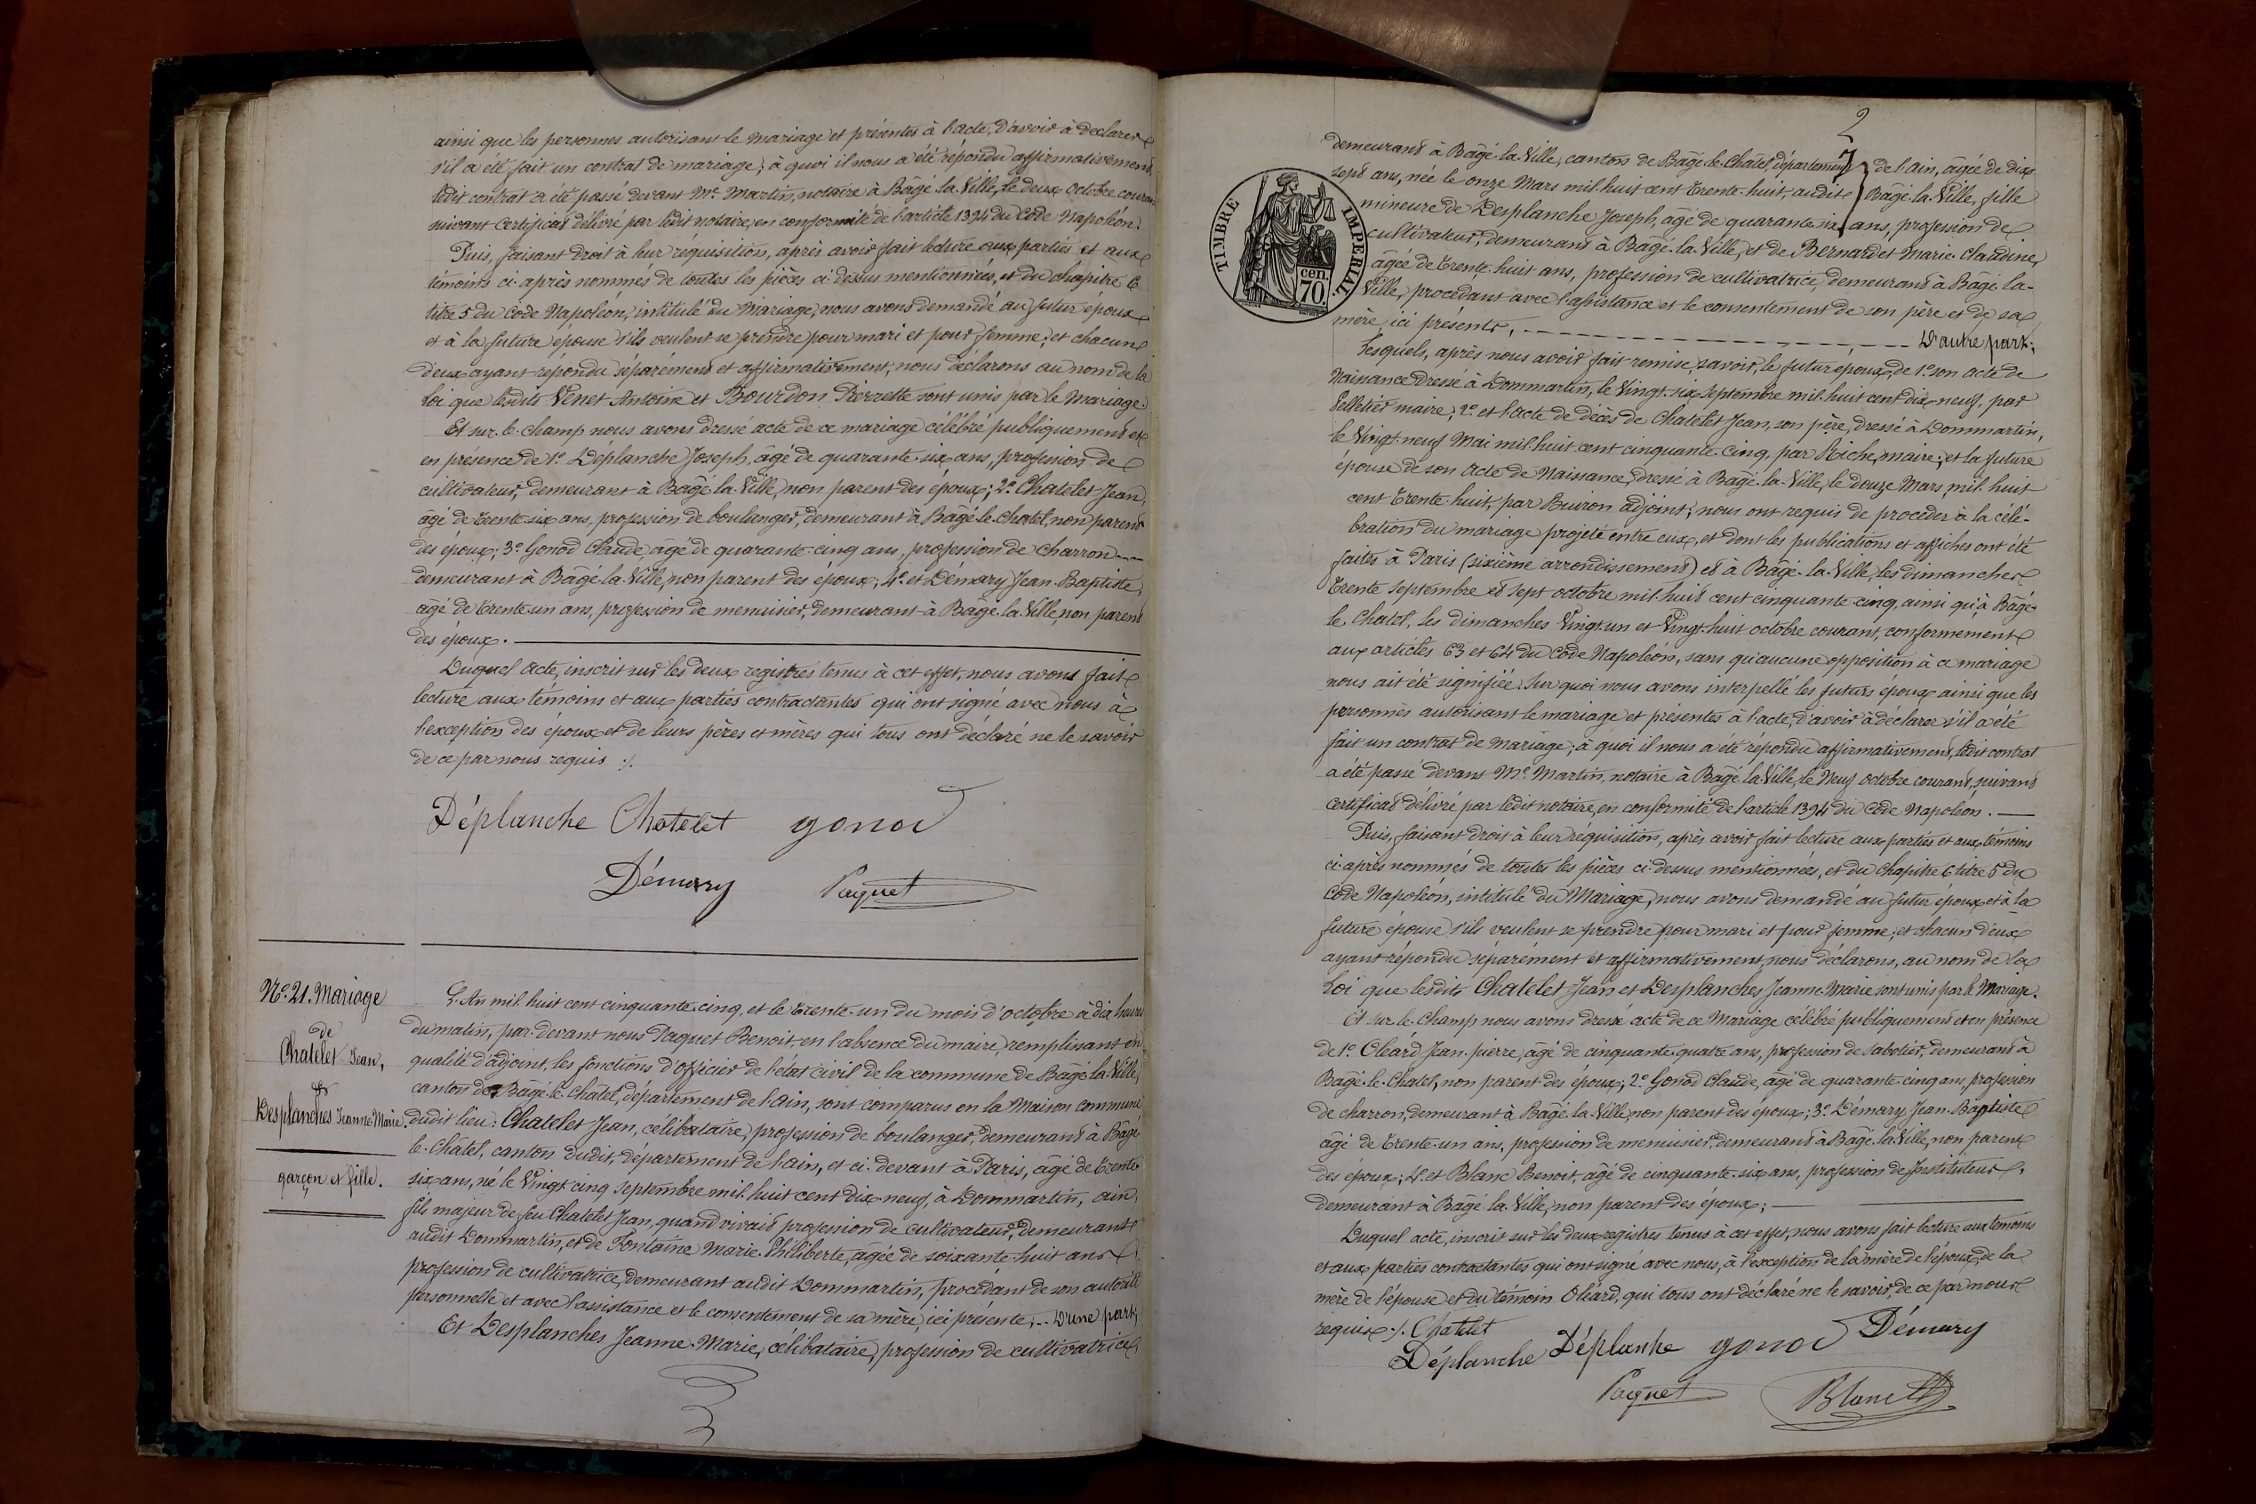 ainsi que les personnes autorisant le mariage et présentes à l'acte, d'avoir à déclarer
s'il a été fait un contrat de mariage; à quoi il nous a été répondu affirmativement,
ledit contrat a été passé devant Me Martin, notaire à Bâgé-la-Ville, le deux octobre courant
suivant certificat délivré par ledit notaire, en conformité de l'article 1394 du Code Napoléon.
Puis, faisant droit à leur requisition, après avoir fait lecture aux parties et aux
témoins ci-après nommés de toutes les pièces ci-dessus mentionnées, et du chapitre 6
titre 5 du Code Napoléon, intitulé du Mariage, nous avons demandé au futur époux
et à la future épouse s'ils veulent se prendre pour mari et pour femme; et chacun
d'eux ayant répondu séparément et affirmativement, nous déclarons au nom de la
loi que lesdits Venet Antoine et Bourdon Pierrette sont unis par le Mariage.
Et sur-le-champ nous avons dressé acte de ce mariage célébré publiquement et
en présence de 1o Déplanche Joseph, âgé de quarante-six ans, profession de
cultivateur, demeurant à Bâgé-la-Ville, non parent des époux; 2o Chatelet Jean,
âgé de trente-six ans, profession de boulanger, demeurant à Bâgé-le-Chatel, non parent
des époux; 3o Gonod Claude âgé de quarante-cinq ans, profession de Charron
demeurant à Bâgé-la-Ville, non parent des époux; 4o et Démary Jean-Baptiste,
âgé de trente-un ans, profession de menuisier, demeurant à Bâgé-la-Ville, non parent
des époux.
Duquel acte, inscrit sur les deux registres tenus à cet effet, nous avons fait
lecture aux témoins et aux parties contractantes qui ont signé avec nous à
l'exception des époux et de leurs pères et mères qui tous ont déclaré ne le savoir
de ce par nous requis ./.
Déplanche Chatelet gonod
Démary Paquet
No 21. Mariage
de
Chatelet Jean,
&
Desplanches Jeanne Marie.
garçon et fille.
L'An mil huit cent cinquante-cinq, et le trente-un du mois d'octobre à dix heures
du matin, par-devant nous Paquet Benoit, en l'absence du maire, remplissant en
qualité d'adjoint, les fonctions d'officier de l'état civil de la commune de Bâgé-la-Ville,
canton de Bâgé-le-Chatel, département de l'Ain, sont comparus en la Maison commune
dudit lieu: Chatelet Jean, célibataire, profession de boulanger, demeurant à Bâgé
le-Chatel, canton dudit, département de l'Ain, et ci-devant à Paris, âgé de trente
six ans, né le Vingt-cinq septembre mil huit cent dix-neuf, à Dommartin, ain,
fils majeur de feu Chatelet Jean, quand vivait profession de cultivateur, demeurant
audit Dommartin, et de Fontaine Marie-Philiberte, âgée de soixante-huit ans
profession de cultivatrice, demeurant audit Dommartin, procédant de son autorité
personnelle et avec l'assistance et le consentement de sa mère, ici présente, -- D'une part,
Et Desplanches Jeanne-Marie, célibataire, profession de cultivatrice,
2
TIMBRE IMPERIAL.
cen.
70.
demeurant à Bâgé-la-Ville, canton de Bâgé-le-Chatel département de l'Ain, âgée de dix-
sept ans, née le onze Mars mil huit cent trente-huit, audit Bâgé-la-Ville, fille
mineure de Desplanche Joseph, âgé de quarante-six ans, profession de
cultivateur, demeurant à Bâgé-la-Ville, et de Bernardet Marie-Claudine,
âgée de trente-huit ans, profession de cultivatrice, demeurant à Bâgé-la-
Ville, procédant avec l'assistance et le consentement de son père et de sa
mère, ici présents, D'autre part;
Lesquels, après nous avoir fait remise, savoir, le futur époux, de 1o son acte de
Naissance dressé à Dommartin, le Vingt-six septembre mil huit cent dix-neuf, par
Pelletier maire; 2o et l'acte de décès de Chatelet Jean, son père, dressé à Dommartin,
le Vingt-neuf Mai mil huit cent cinquante-cinq, par Riche, maire; et la future
épouse de son acte de Naissance, dressé à Bâgé-la-Ville, le douze Mars mil huit
cent trente-huit, par Buiron adjoint; nous ont requis de procéder à la célé-
bration du mariage projeté entre eux, et dont les publications et affiches ont été
faites à Paris (sixième arrondissement) et à Bâgé-la-Ville, les dimanches
trente septembre et sept octobre mil huit cent cinquante-cinq, ainsi qu'à Bâgé-
le-Chatel, les dimanches Vingt-un et Vingt-huit octobre courant, conformement
aux articles 63 et 64 du Code Napoléon, sans qu'aucune opposition à ce mariage
nous ait été signifiée. Sur quoi nous avons interpellé les futurs époux ainsi que les
personnes autorisant le mariage et présentes à l'acte, d'avoir à déclarer s'il a été
fait un contrat de mariage; à quoi il nous a été répondu affirmativement, ledit contrat
a été passé devant Me Martin, notaire à Bâgé-la-Ville, le Neuf octobre courant, suivant
certificat délivré par ledit notaire, en conformité de l'article 1394 du Code Napoléon.
Puis, faisant droit à leur réquisition, après avoir fait lecture aux parties et aux témoins
ci-après nommés de toutes les pièces ci-dessus mentionnées, et du Chapitre 6 titre 5 du
Code Napoléon, intitulé du Mariage, nous avons demandé au futur époux et à la
future épouse s'ils veulent se prendre pour mari et pour femme; et chacun d'eux
ayant répondu séparément et affirmativement, nous déclarons, au nom de la
Loi que lesdits Chatelet Jean et Desplanches Jeanne Marie sont unis par le Mariage.
Et sur-le-champ nous avons dressé acte de ce Mariage célébré publiquement et en présence
de 1o Oleard Jean-pierre, âgé de cinquante-quatre ans, profession de sabotier, demeurant à
Bâgé-le-Chatel, non parent des époux; 2o Gonod Claude, âgé de quarante-cinq ans, profession
de charron, demeurant à Bâgé-la-Ville, non parent des époux; 3o Démary Jean-Baptiste
âgé de trente-un ans, profession de menuisier, demeurant à Bâgé-la-Ville, non parent
des époux; 4o et Blanc Benoit, âgé de cinquante-six ans, profession de Instituteur,
demeurant à Bâgé-la-Ville, non parent des époux;
Duquel acte, inscrit sur les deux registres tenus à cet effet, nous avons fait lecture aux témoins
et aux parties contractantes qui ont signé avec nous, à l'exception de la mère de l'époux, de la
mère de l'épouse et du témoin Oleard, qui tous ont déclaré ne le savoir, de ce par nous
requis ./. Chatelet
Déplanche Déplanhe gonod Démary
Paquet Blanc